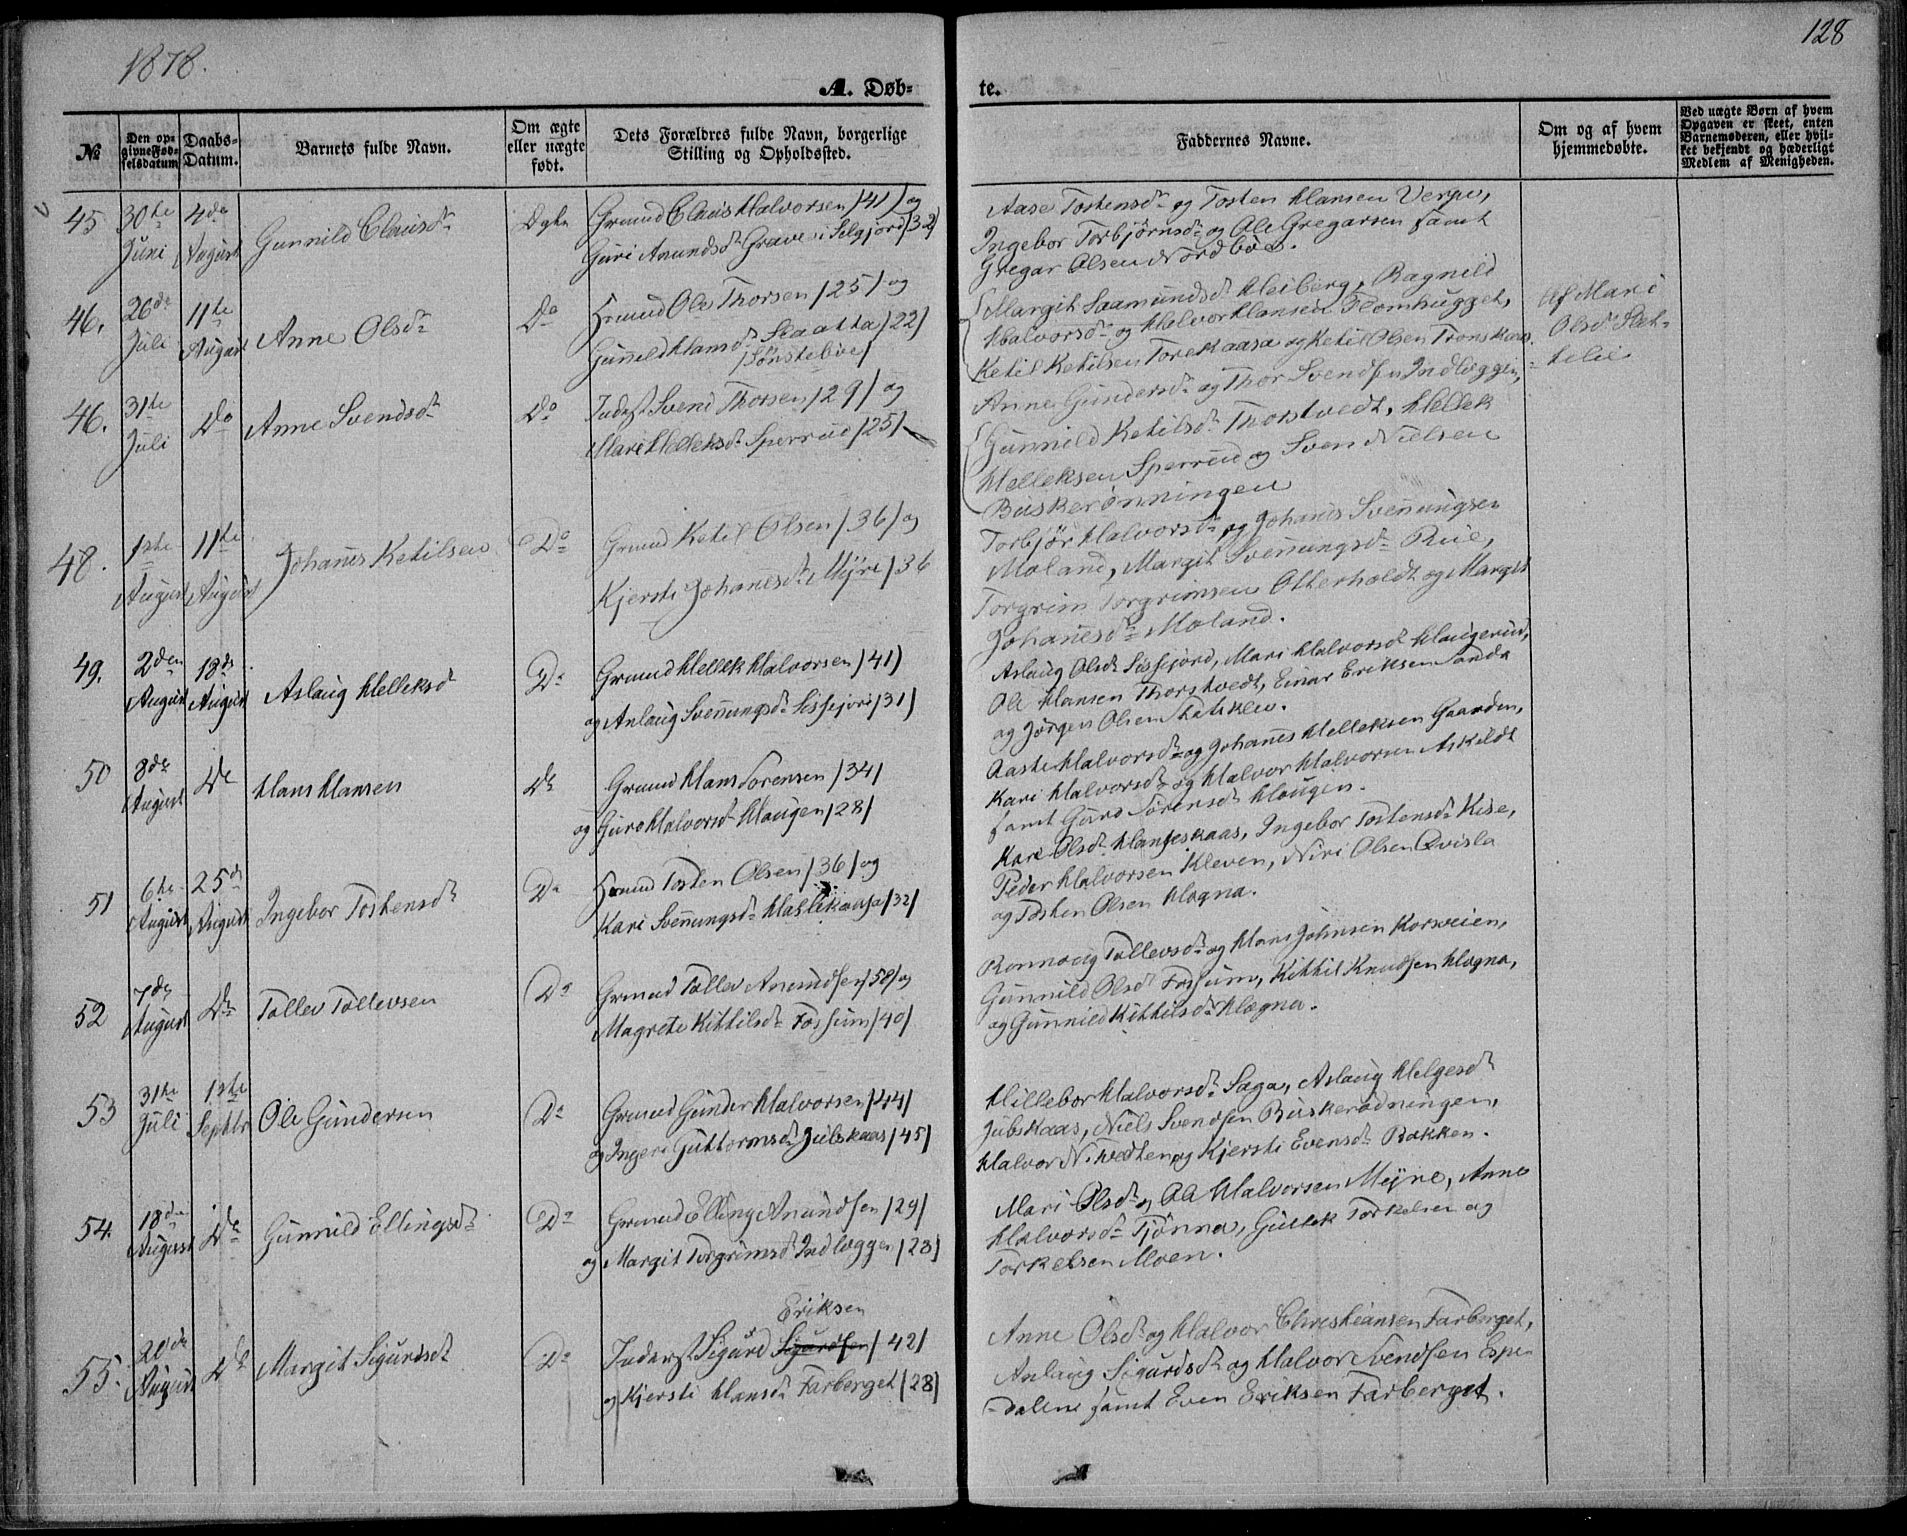 1878.
128
A. Døb-
te.
№
Den op-
givne Fød-
selsdatum
Daabs-
Datum.
Barnets fulde Navn.
Om ægte
eller uægte
født.
Dets Forældres fulde Navn, borgerlige
Stilling og Opholdssted.
Faddernes Navne.
Om og af hvem
hjemmedøbte.
Ved uægte Børn af hvem
Opgaven er skeet, enten
Barnemoderen, eller hvil-
ket bekjendt og hæderligt
Medlem af Menigheden.
45
30te Juni
4de August
Gunnild Clausdr
Grmd Claus Halvorsen /41/ og
Guri Amundsdr Grave i Selgjord /32/
Aase Tostensdr og Tosten Hansen Verpe,
Ingebor Torbjørnsdr og Ole Gregarsen samt
Gregar Olsen Nordbøe.
46.
26de Juli
11te August
Anne Olsdr
Do
Hrmd Ole Thorsen /25/ og
Gunild Hansdr Slaatta /22/
/Sønstebøe/
Margit Saamundsdr Heiberg, Ragnild
Halvorsdr og Halvor Hansen Flomhugget,
Ketil Ketilsen Torekaasa og Ketil Olsen
Af Mari
Olsdr
46.
31te Juli
Do
Anne Svendsdr
Do
Inderst Svend Thorsen /29/ og
Mari Helleksdr Sperrud /25/
Anne Gundersdr og Thor Svendsen Indlæggen,
Gunnild Ketilsdr Thorstvedt, Hellek
Helleksen Sperrud og Sven Nielsen
Buskerønningen
48.
1ste August
11te August
Johanes Ketilsen
Do
Grmd Ketil Olsen /36/ og
Kjersti Johanesdr Myre /36
Torbjør Halvorsdr og Johanes Svenungsen
Moland, Margit Svennungsdr Rue,
Torgrim Torgrimsen Otterholdt og Margit
Johanesdr Moland.
49.
2den August
18de August
Aslaug Helleksd
Do
Grmd Hellek Halvorsen /41/
og Anlaug Svennungsdr Sissejord /31/
Aslaug Olsdr Sissejord, Mari Halvorsdr Haugerud,
Ole Hansen Thorstvedt, Einar Eriksen Sanda
og Jørgen Olsen
50
8de August
Do
Hans Hansen
Do
Grmd Hans Sørensen /34/
og Guro Halvorsdr Haugen /28/
Aaste Halvorsdr og Johanes Helleksen Gaarden,
Kari Halvorsdr og Halvor Halvorsen Askildt
samt Guro Sørensdr Haugen.
51
6te August
25de August
Ingebor Tostensdr
Do
Hrmd Tosten Olsen /36/ og
Kari Svennungsdr Haslekaasa /32/
Kari Olsdr Hanseskaas, Ingebor Tostensdr Kise,
Peder Halvorsen Kleven, Niri Olsen Qvisla
og Tosten Olsen Hogna.
52
7de August
Do
Tollev Tollevsen
Do
Grmd Tollev Amundsen /58/ og
Magrete Kittilsdr Fossum /40/
Ronnoug Tollevsdr og Hans Johnsen Korsveien,
Gunnild Olsdr Fossum, Kittil Knudsen Hogna,
og Gunnild Kittilsdr Hogna.
53
31te Juli
1ste Septbr
Ole Gundersen
Do
Grmd Gunder Halvorsen /44/
og Ingeri Guttormsdr Jubskaas /45/
Hillebor Halvorsdr Saga, Aslaug Helgesdr
Jubskaas, Niels Svendsen Buskerødningen,
Halvor N. Tvedten og Kjersti Evensdr Bakken.
54.
18de August
Do
Gunnild Ellingsdr
Do
Grmd Elling Anundsen /29/
og Margit Torgrimsdr Indlæggen /23/
Mari Olsdr og Ole Halvorsen Myre, Anne
Halvorsdr Tjønna, Gullek Torkelsen og
Torkelsen Moen.
55.
20de August
Do
Margit Sigurdsdr
Do
Eriksen
Inderst Sigurd Sigurdsen /42/
og Kjersti Hansdr Farberget /28/
Anne Olsdr og Halvor Christiansen Farberget,
Anlaug Sigurdsdr og Halvor Svendsen Espe-
dalene samt Even Eriksen Farberget.